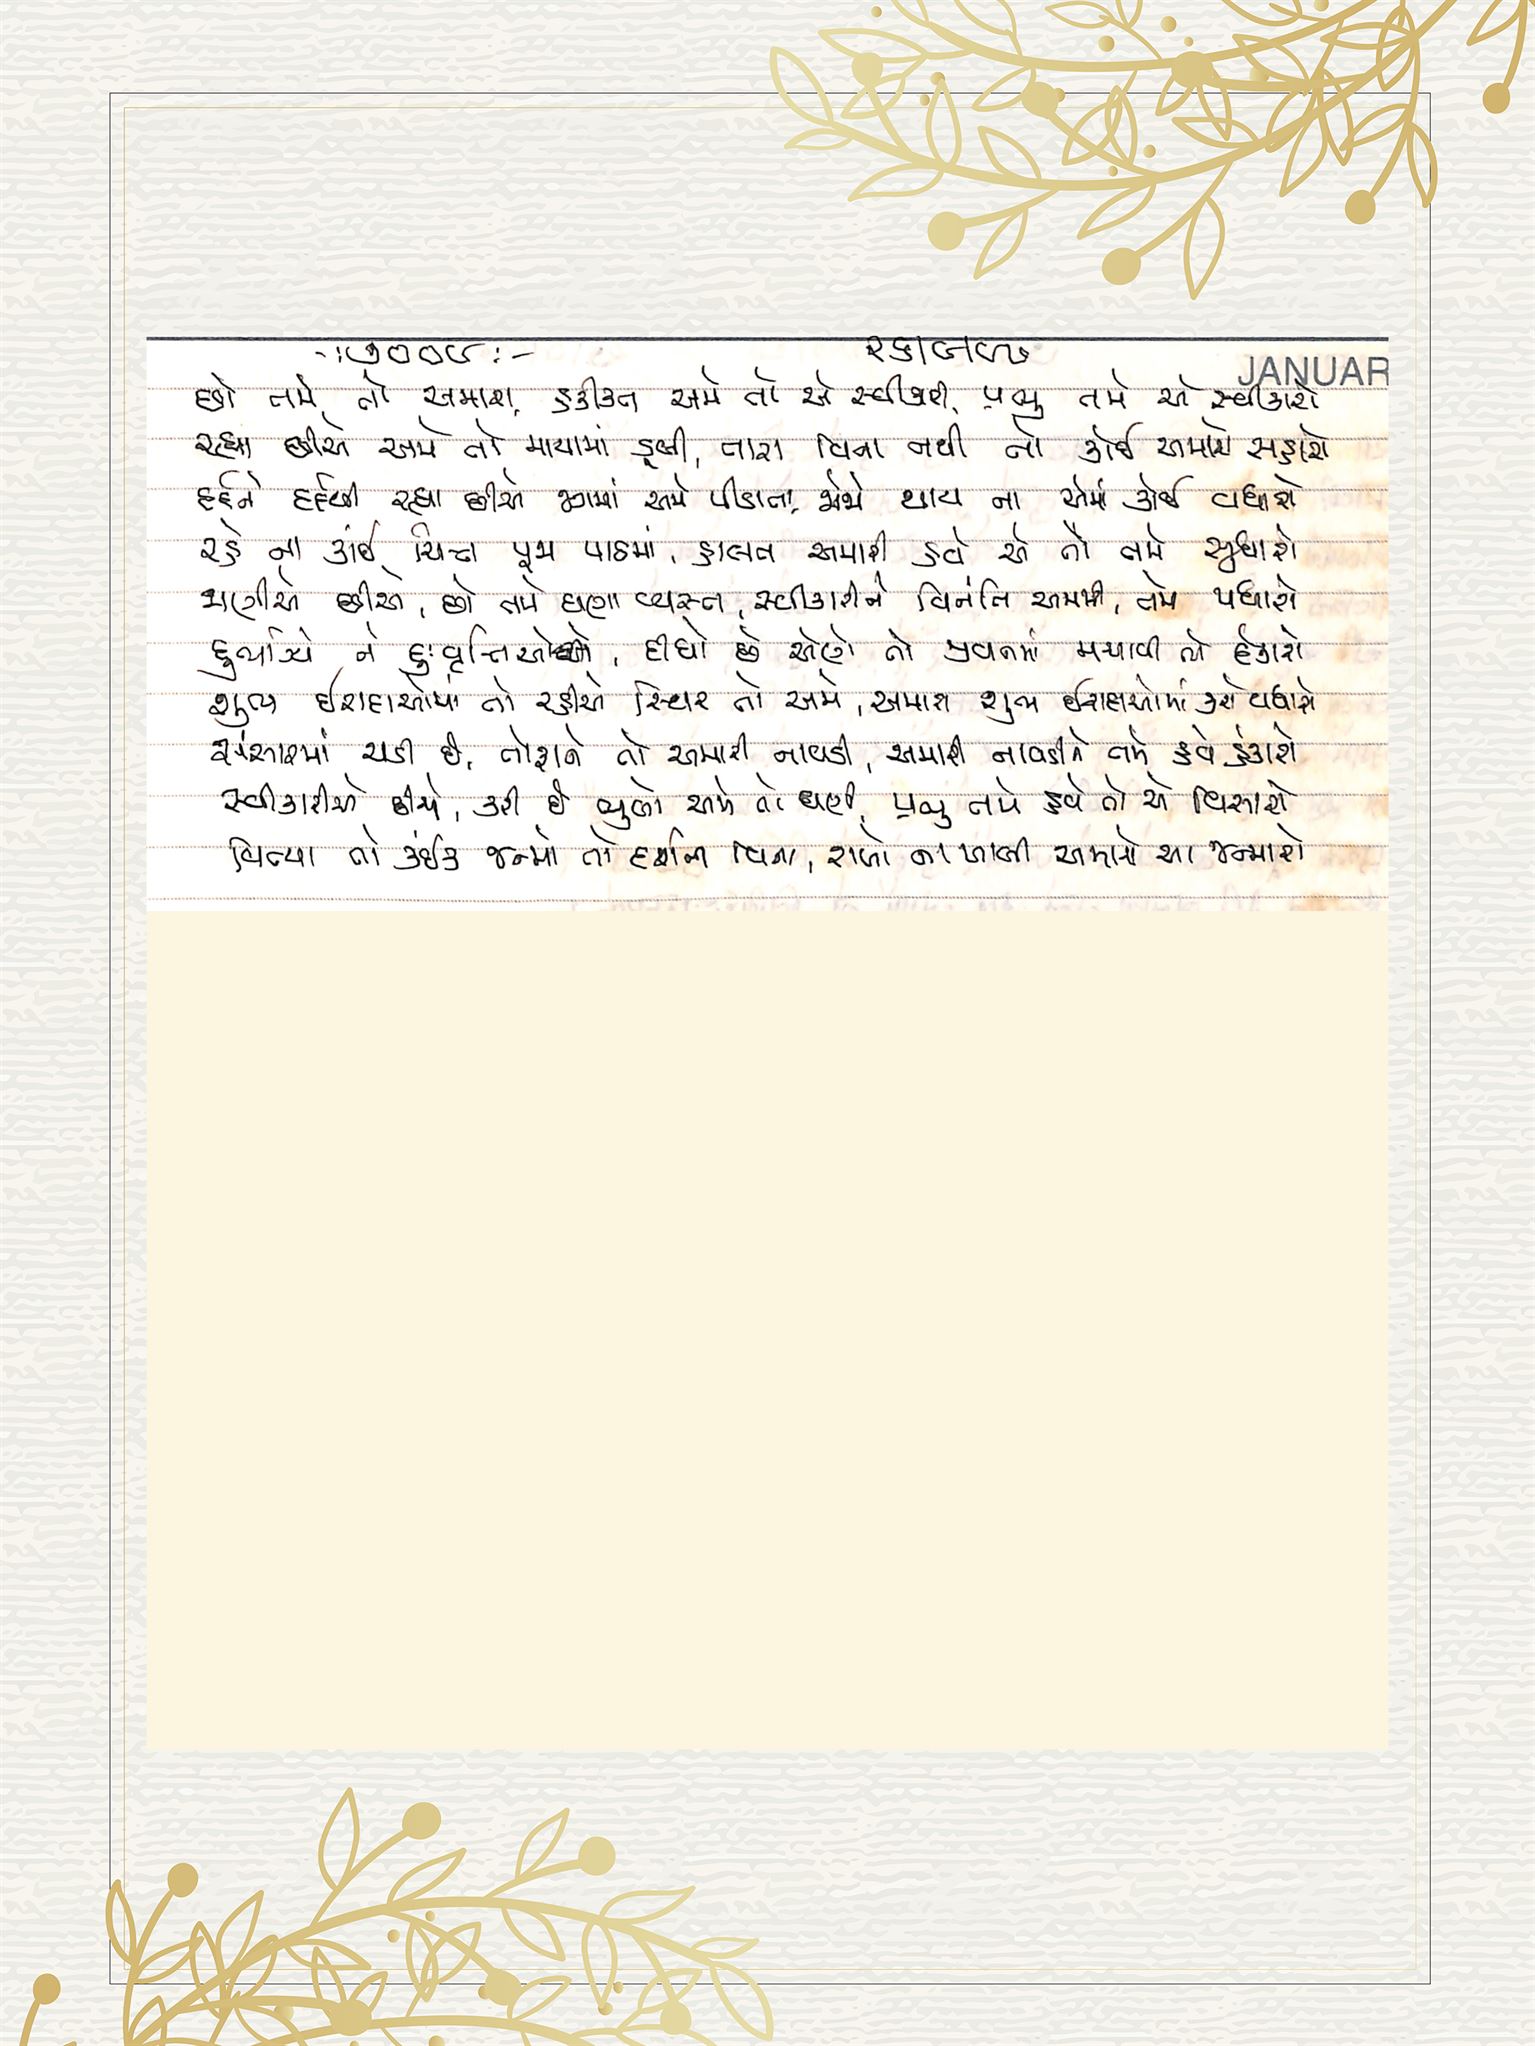 -:૭૦૦૮:-
JANUAR
છો તમે, તો અમારા, હકીકત અમે તો એ સ્વીકારી, પ્રભુ તમે એ સ્વીકારો
રહ્યા છીએ અમે તો માયામાં ડૂબી, તારા વિના નથી તો કોઈ અમારો સહારો
દર્દને દર્દથી રહ્યા છીએ જગમાં અમે પીડાતા, જોજો થાય ના એમાં કોઈ વધારો
રહે ના કાંઈ ચિત્ત પૂજા પાઠમાં, હાલત અમારી હવે એ તો તમે સુધારો
જાણીએ છીએ, છો તમે ઘણા વ્યસ્ત, સ્વીકારીને વિનંતિ અમારી, તમે પધારો
દુર્ભાગ્યે ને દુઃવૃત્તિઓએ, દીધો છે એણે તો જીવનમાં મચાવી તો હોકારો
શુભ ઈરાદાઓમાં તો રહીએ સ્થિર તો અમે, અમારા શુભ ઈરાદાઓમાં કરો વધારો
સંસારમાં ચડી છે, તોફાને તો અમારી નાવડી, અમારી નાવડીને તમે હવે હંકારો
સ્વીકારીએ છીએ, કરી છે ભુલો અમે તો ઘણી, પ્રભુ તમે હવે તો એ વિસારો
વિત્યા તો કંઈક જન્મો તો દર્શન વિના, રાખો ના ખાલી અમારો આ જન્મારો